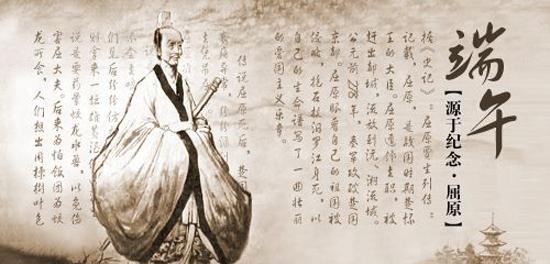 端午
【源于纪念·屈原】
据《史记》:屈原贾生列传:
记载,屈原,是战国时期楚怀
王的大臣。屈原遭谗去职,被
赶出都城,流放到沅、湘流域。
公元前278年,秦军攻破楚国
京都。屈原眼看自己的祖国被
侵略,抱石投汨罗江身死,以
自己的生命谱写了一曲壮丽
的爱国主义乐章。
传说屈原死后,楚国
们见后纷纷仿
则拿来一坛雄黄
说是要药晕蛟龙水兽,以免伤
害屈大夫。后来为怕饭团为蛟
龙所食,人们想出用楝树叶包